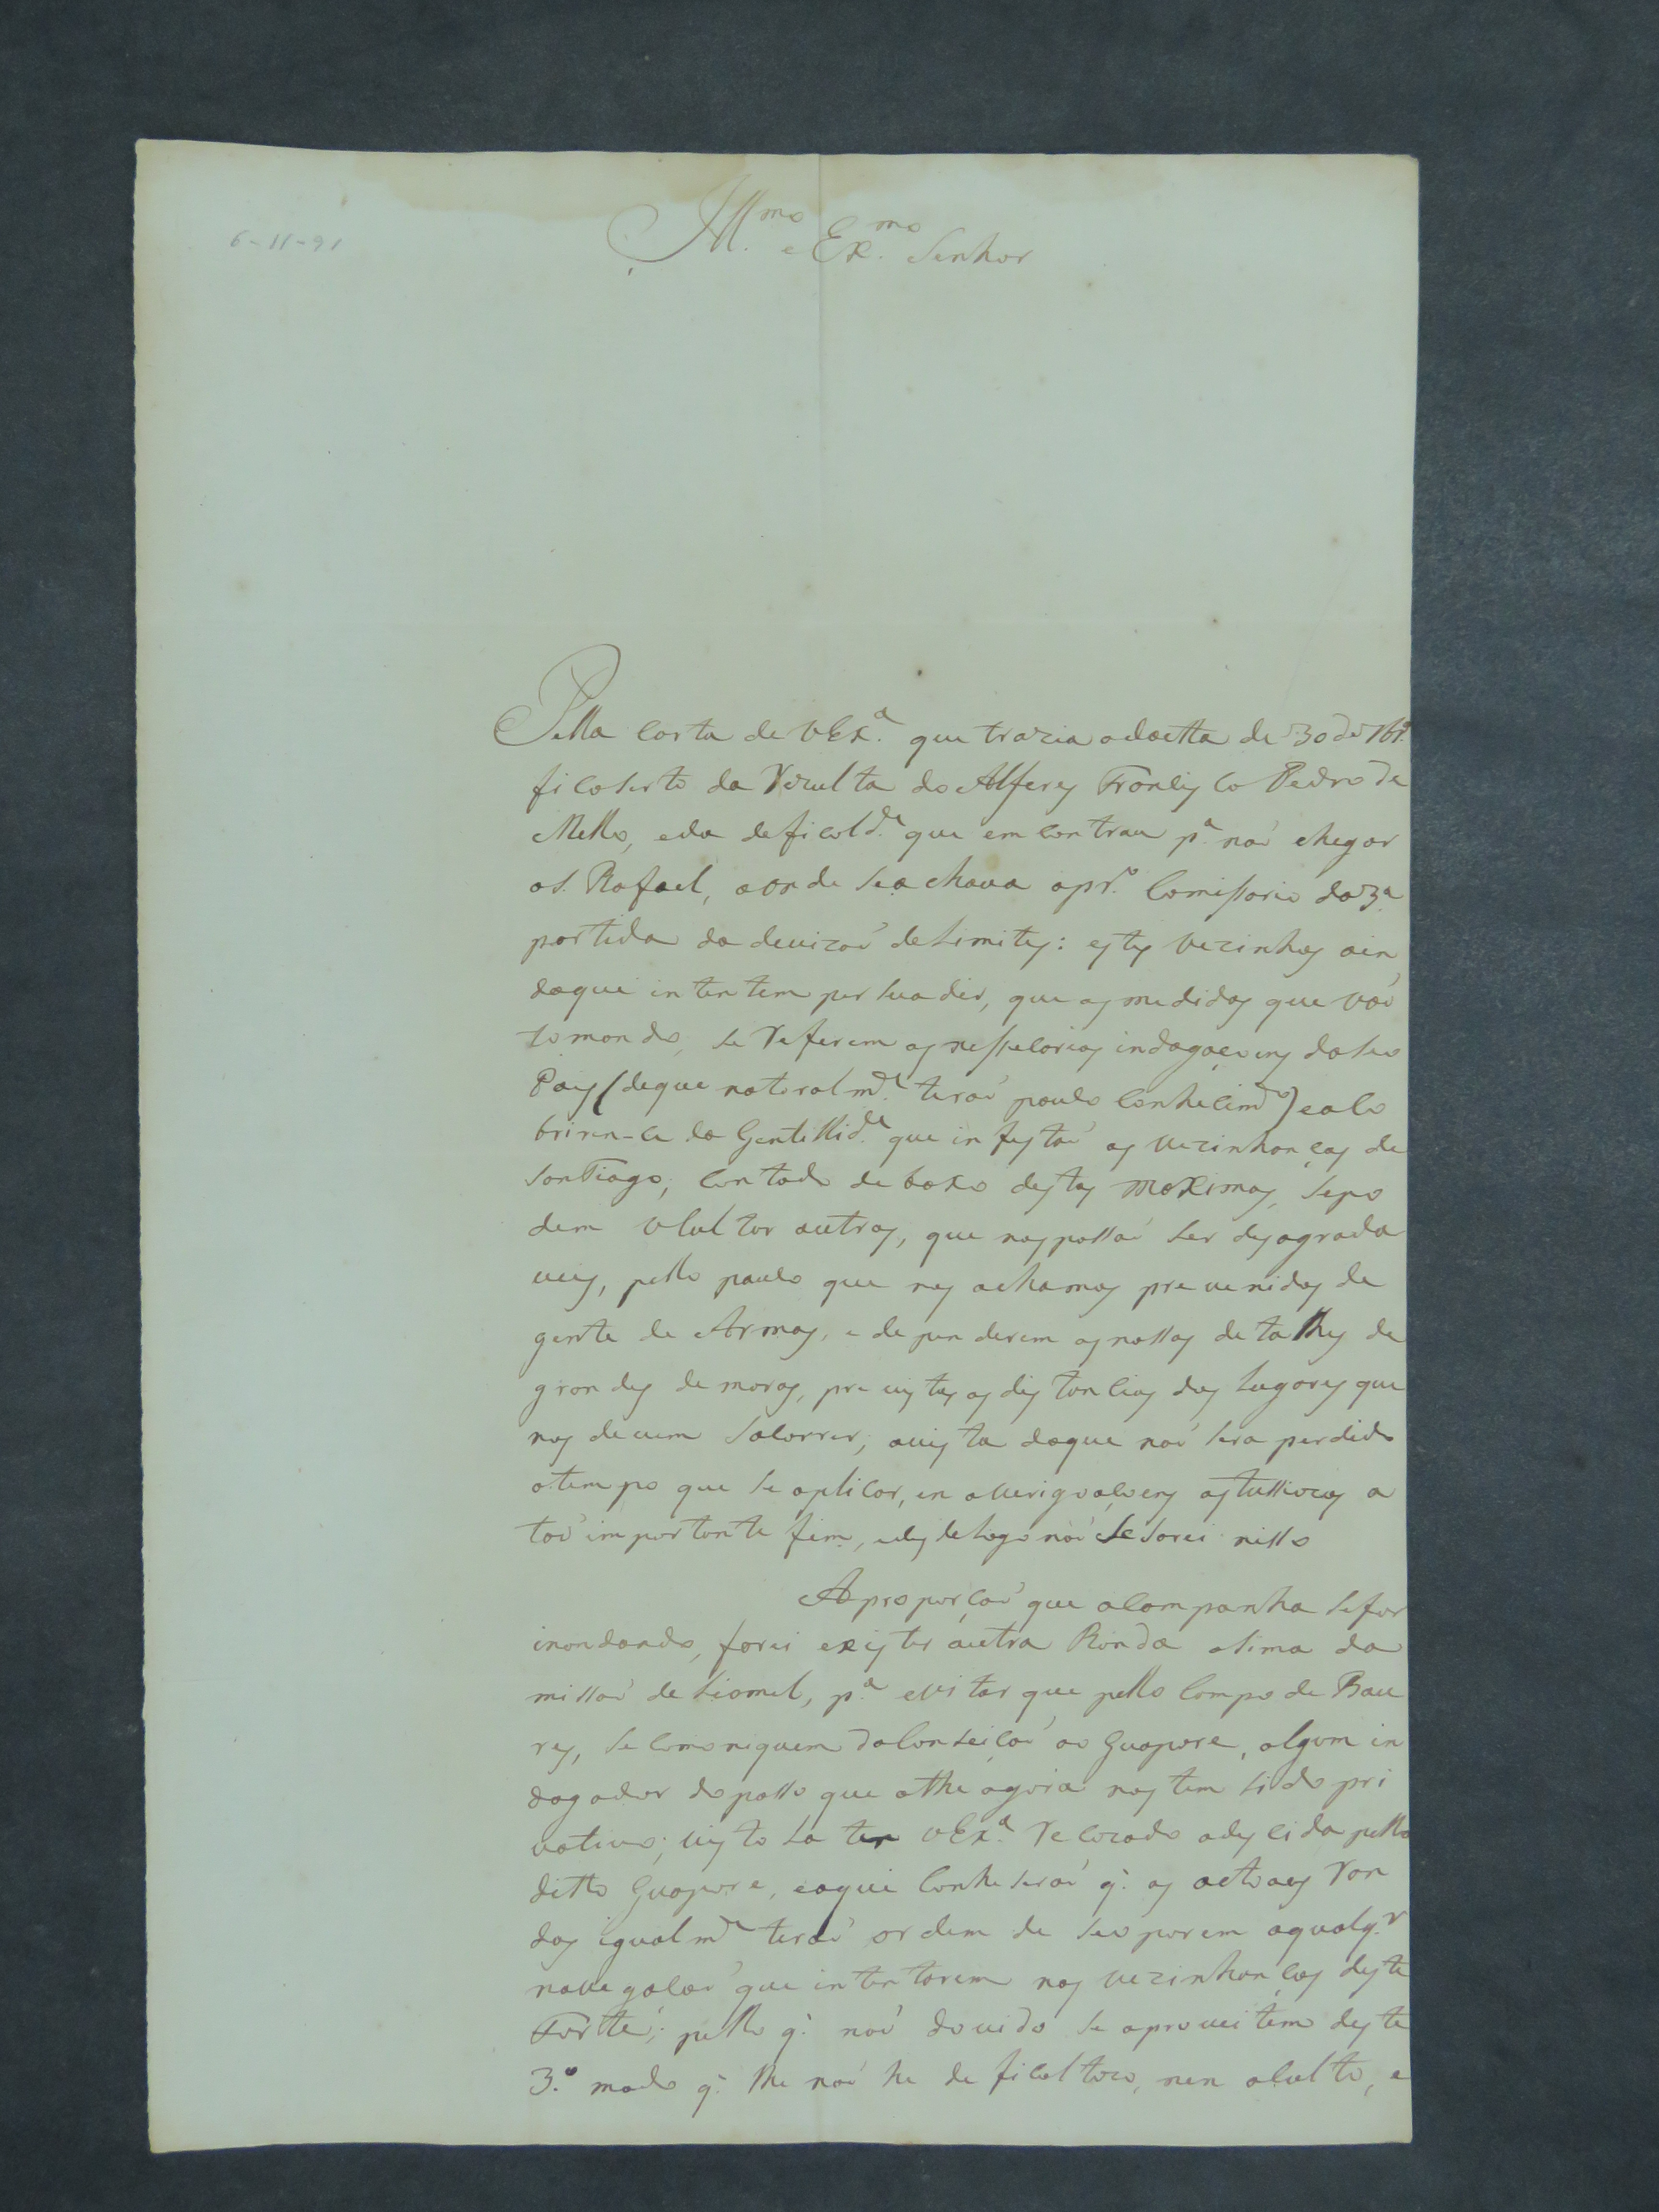 6-11-91
Ill.mo e Ex.mo Senhor
Pella Carta de VEx.a que trazia adactta de 30 de 7br.o
fico serto da Rezulta do Alferes Francisco Pedro de
Mello, eda deficuld.e que emcontrau p.a naõ chegar
aS. Rafael, aonde seachava opr.o Comissario da 3.a
partida da devizaõ deLimites: estes vezinhos ain
daque intentem persuadir, que as medidas que vaõ
tomando, se Referem as nessesarias indagaçoens doseu
Pais (deque naturalm.te teraõ pouco conhecim.to) eaco
brirem-se da Gentillid.e que infestaõ as vezinhanças de
SanTiago; contudo debaxo destas maximas, sepo
dem ocultar outras, que nospossaõ ser desagrada
veis, pello pouco que nos achamos prevenidos de
gente de Armas, e dependerem as nossas detalhes de
grandes demoras, previstas as distancias dos Lugares que
nos devem Socorrer; avista doque naõ sera perdido
otempo que se aplicar, en averiguaçoens astussiozas a
taõ importante fim, edesdelogo naõ Sesarei nisso
Aproporçaõ que acampanha sefor
inondando, farei exister outra Ronda asima da
missaõ de Liomil, p.a evitar que pello Campo de Bau
res, se comoniquem daConseiçaõ ao Guapore, algum in
dagador dopasso que athe agora nos tem sido pri
vativo; visto ja ter VEx.a Recozado adescida pello
ditto Guapore, eaqui conheseraõ q. as actoaes Ron
das igualm.te teraõ ordem de seoporem aqualq.r
navegaçaõ que intentarem nas vezinhanças deste
Forte; pello q. naõ duvido se aproveitem deste
3.o modo q. lhe naõ he deficultozo, nem oculto, e